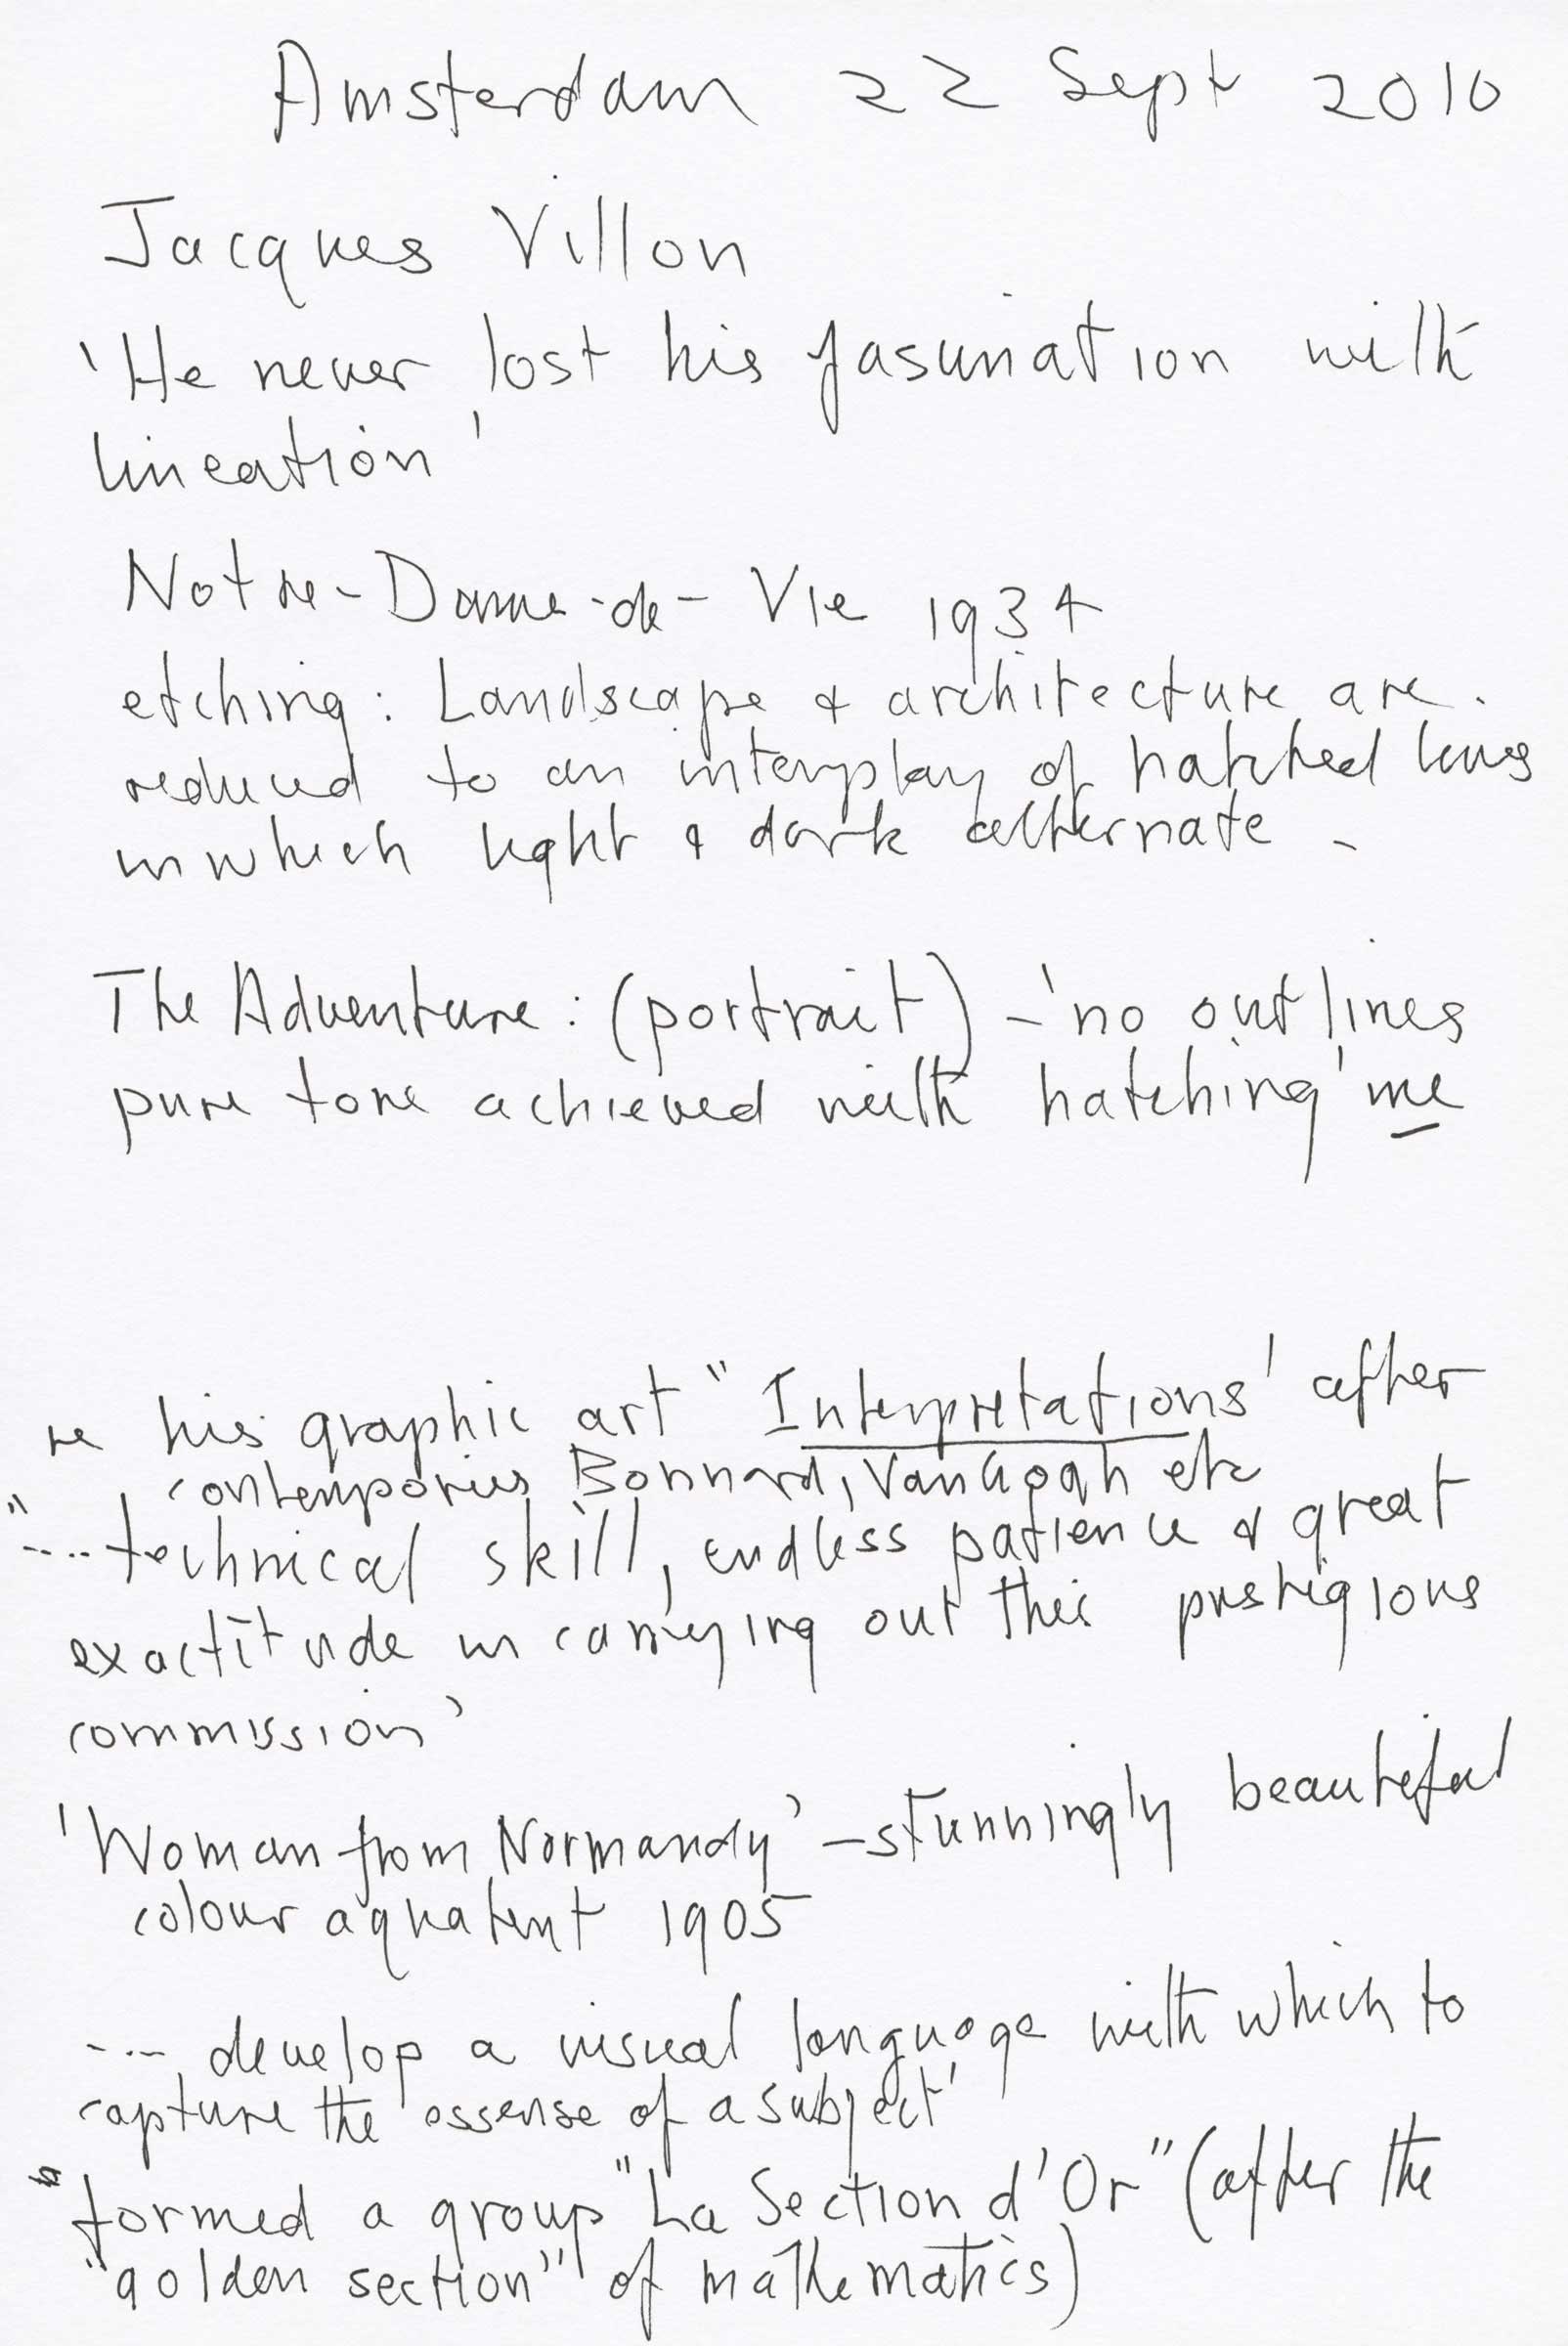 Amsterdam 22 Sept 2010
Jacques Villon
'He never lost his fascination with
lineation'
Notre-Dame-de-Vie 1934
etching: Landscape & architecture are
reduced to an interplay of hatched lines
in which light & dark alternate -
The Adventure: (portrait) - 'no outlines
pure tone achieved with hatching' me
re his graphic art "Interpretations' after
contempories Bonnard, Van Gogh etc
"....technical skill, endless patience & great
exactitude in carrying out this prestigious
commission'
'Woman from Normandy' - stunningly beautiful
colour aquatint 1905
---- develop a visual language with which to
capture the essense of a subject'
"formed a group "La Section d'Or" (after the
"golden section" of mathematics)